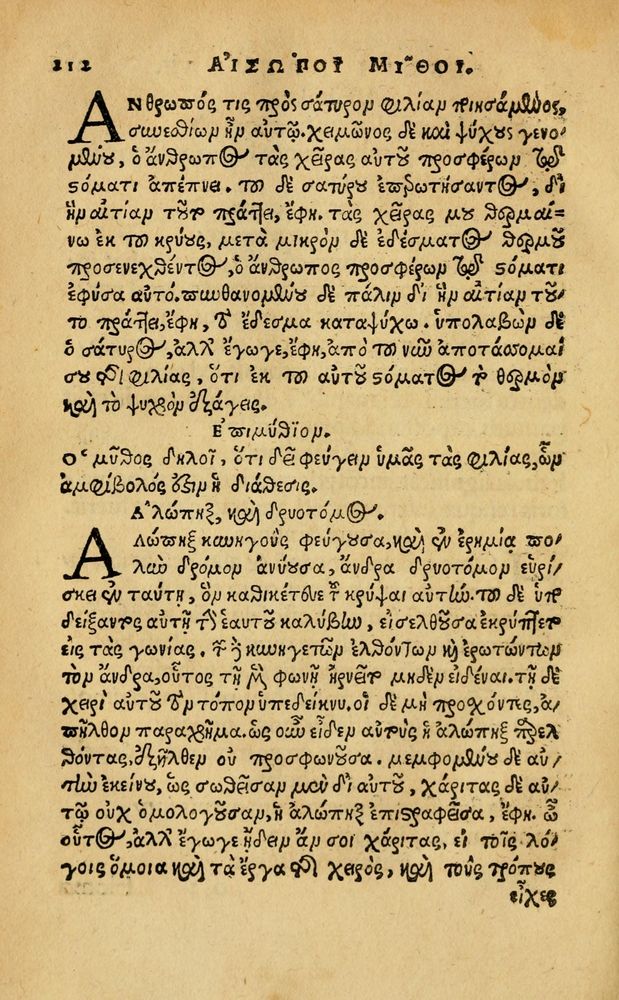 212 ΑἸΣΩΠΟΥ ΜΥ͂ΘΟΙ.
ΑΝθρωπός τις πρὸς σάτυρον φιλίαν ποιησάμενος,
συνεσθίων ἦν αὐτῷ. χειμῶνος δὲ καὶ ψύχους γενο-
μένου, ὁ ἄνθρωπος τὰς χεῖρας αὐτοῦ προσφέρων τῷ
στόματι ἀπέπνει. τοῦ δὲ σατύρου ἐπερωτήσαντος, δι
ἣν αἰτίαν τοῦτο πράττει, ἔφη. τὰς χεῖράς μου θερμαί-
νω ἐκ τοῦ κρύους, μετὰ μικρὸν δὲ ἐδέσματος θερμοῦ
προσενεχθέντος, ὁ ἄνθρωπος προσφέρων τῷ στόματι
ἐφύσα αὐτό. πυνθανομένου δὲ πάλιν δι ἣν αἰτίαν τοῦ-
το πράττει, ἔφη, τὸ ἔδεσμα καταψύχω. ὑπολαβὼν δὲ
ὁ σάτυρος, ἀλλ ἔγωγε, ἔφη, ἀπὸ τοῦ νῦν ἀποτάσσομαί
σου τῆς φιλίας, ὅτι ἐκ τοῦ αὐτοῦ στόματος τὸ θερμὸν
καὶ τὸ ψυχρὸν ἐξάγεις.
Ἐπιμύθιον.
Ὁ μῦθος δηλοῖ, ὅτι δεῖ φεύγειν ὑμᾶς τὰς φιλίας, ὧν
ἀμφίβολός ἐστιν ἡ διάθεσις.
Ἀλώπηξ, καὶ δρυοτόμος.
ΑΛώπηξ κυνηγοὺς φεύγουσα, καὶ ἐν ἐρημίᾳ πο-
λὺν δρόμον ἀνύσασα, ἄνδρα δρυοτόμον εὑρί-
σκει ἐν ταύτῃ, ὃν καθικέτευε τοῦ κρύψαι αὐτήν. τοῦ δὲ ὑπο
δείξαντος αὐτῇ τὴν ἑαυτοῦ καλύβην, εἰσελθοῦσα ἐκρύπτετο
εἰς τὰς γωνίας. τῶν δὲ κυνηγετῶν ἐλθόντων καὶ ἐρωτώντων
τὸν ἄνδρα, οὗτος τῇ μὲν φωνῇ ἠρνεῖτο μηδὲν εἰδέναι. τῇ δὲ
χειρὶ αὐτοῦ τὸν τόπον ὑπεδείκνυ. οἱ δὲ μὴ προσχόντες, ἀ-
πῆλθον παραχρῆμα. ὡς οὖν εἶδεν αὐτοὺς ἡ ἀλώπηξ παρελ
θόντας, ἐξῆλθεν οὐ προσφωνοῦσα. μεμφομένου δὲ αὐ-
τὴν ἐκείνου, ὡς σωθεῖσαν μὲν δι αὐτοῦ, χάριτας δὲ αὐ-
τῷ οὐχ ὁμολογοῦσαν, ἡ ἀλώπηξ ἐπιστραφεῖσα, ἔφη. ὦ
οὗτος, ἀλλ ἔγωγε ᾔδειν ἄν σοι χάριτας, εἰ τοῖς λό-
γοις ὅμοια καὶ τὰ ἔργα τῆς χειρός, καὶ τοὺς τρόπους
εἶχες